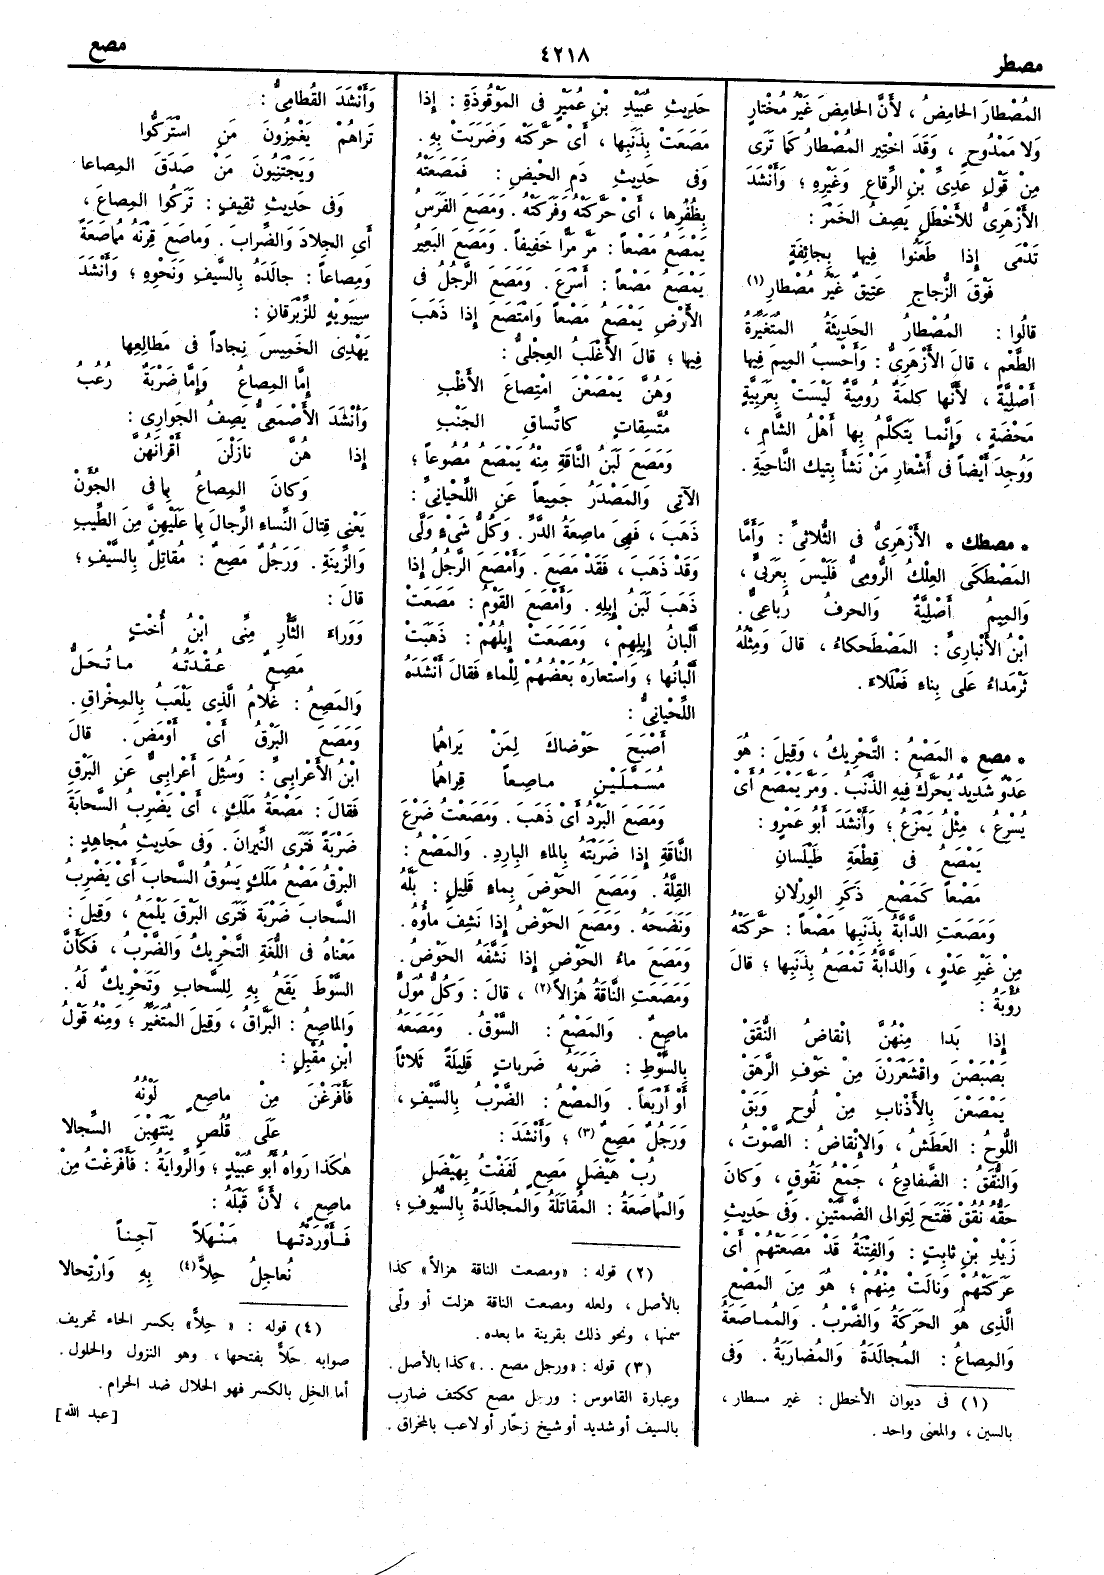 مصطر
٤٢١٨
مصع
المُصْطارَ الحامِضُ ، لأَنَّ الحامِضَ غَيْرُ مُخْتارٍ
وَلا مَمْدُوحٍ ، وَقَدَ اخْتِير المُصْطارُ كَما تَرَى
مِنْ قَوْلِ عَدِيِّ بْنِ الرِّقاعِ وَغَيْرِهِ ؛ وَأَنْشَدَ
الأَزْهَرِىُّ للأَخْطَلِ يَصِفُ الخَمْرَ :
تَدْمَى إِذا طَعَنُوا فِيها بِجائِفَةٍ
فَوْقَ الزُّجاجِ عَتِيقٌ غَيْرُ مُصْطارِ (١)
قالُوا : المُصْطارُ الحَدِيثَةُ المُتَغَيِّرَةُ
الطَّعْمِ ، قالَ الأَزْهَرِىُّ : وَأَحْسبُ المِيمَ فِيها
أَصْلِيَّةً ، لأَنَّها كلمَةٌ رُومِيَّةٌ لَيْسَتْ بِعَرَبِيَّةٍ
مَحْضَةٍ ، وَإِنَّما يَتَكَلَّمُ بِها أَهْلُ الشَّامِ ،
وَوُجِدَ أَيْضاً فى أَشْعارِ مَنْ نَشَأَ بِتِيكَ النَّاحِيَةِ .
• مصطك • الأَزْهَرِىُّ فى الثُّلاثىِّ : وَأَمَّا
المَصْطَكَى العِلْكُ الرُّومِىُّ فَلَيْسَ بِعَرَبىٍّ ،
وَالمِيمُ أَصْلِيَّةٌ وَالحرفُ رُباعىٌّ .
ابْنُ الأَنْبارِىِّ : المَصْطَحكاءُ ، قالَ وَمِثْلُهُ
ثَرْمَداءُ عَلَى بِناءِ فَعْلَلاءَ .
• مصع • المَصْعُ : التَّحْرِيكُ ، وَقِيلَ : هُوَ
عَدْوٌ شَدِيدٌ يُحَرَّكُ فِيهِ الذَّنَبُ . وَمَرَّ يَمْصَعُ أَىْ
يُسْرِعُ ، مِثْلُ يَمْزَعُ ؛ وَأَنْشَدَ أَبُو عَمْرٍو :
يَمْصَعُ فى قِطْعَةِ طَيْلَسانِ
مَصْعاً كَمَصْعِ ذَكَرِ الوِرْلانِ
وَمَصَعَتِ الدَّابَّةُ بِذَنَبِها مَصْعاً : حَرَّكَتْهُ
مِنْ غَيْرِ عَدْوٍ ، وَالدَّابَّةُ تَمْصَعُ بِذَنَبِها ؛ قالَ
رُؤْبَةُ :
إِذا بَدا مِنْهُنَّ إِنْقاضُ النُّقَقْ
بَصْبَصْنَ وَاقْشَعْرَرْنَ مِنْ خَوْفِ الرَّهَقْ
يَمْصَعْنَ بِالأَذْنابِ مِنْ لُوحٍ وَبَقْ
اللُّوحُ : العَطَشُ ، وَالإِنْقاضُ : الصَّوْتُ ،
وَالنُّقَقُ : الضَّفادِعُ ، جَمْعُ نَقُوقٍ ، وَكانَ
حَقُّهُ نُقُقْ فَفَتَحَ لِتَوالِى الضَّمَّتَيْنِ . وَفى حَدِيثِ
زَيْدِ بْنِ ثابِتٍ : وَالفِتْنَةُ قَدْ مَصَعَتْهُمْ أَىْ
عَرَكَتْهُمْ وَنالَتْ مِنْهُمْ ؛ هُوَ مِنَ المَصْعِ
الَّذِى هُوَ الحَرَكَةُ وَالضَّرْبُ . وَالمُماصَعَةُ
وَالمِصاعُ : المُجالَدَةُ وَالمُضارَبَةُ . وَفى
(١) فى ديوان الأخطل : غير مسطار ،
بالسين ، والمعنى واحد .
حَدِيثِ عُبَيْدِ بْنِ عُمَيْرٍ فى المَوْقُوذَةِ : إِذا
مَصَعَتْ بِذَنَبِها ، أَىْ حَرَّكَتْهُ وَضَرَبَتْ بِهِ .
وَفى حَدِيثِ دَمِ الحَيْضِ : فَمَصَعَتْهُ
بِظُفُرِها ، أَىْ حَرَّكَتْهُ وَفَرَكَتْهُ . وَمَصَعَ الفَرَسُ
يَمْصَعُ مَصْعاً : مَرَّ مَرًّا خَفِيفاً . وَمَصَعَ البَعِيرُ
يَمْصَعُ مَصْعاً : أَسْرَعَ . وَمَصَعَ الرَّجُلُ فى
الأَرْضِ يَمْصَعُ مَصْعاً وَامْتَصَعَ إِذا ذَهَبَ
فِيها ؛ قالَ الأَغْلَبُ العِجْلىُّ :
وَهُنَّ يَمْصَعْنَ امْتِصاعَ الأَظْبِ
مُتَّسِقاتٍ كاتِّساقِ الجَنْبِ
وَمَصَعَ لَبَنُ النَّاقَةِ مِنْهُ يَمْصَعُ مُصُوعاً ؛
الآتِى وَالمَصْدَرُ جَمِيعاً عَنِ اللِّحْيانِىِّ :
ذَهَبَ ، فَهِىَ ماصِعَةُ الدَّرِّ . وَكُلُّ شَىْءٍ وَلَّى
وَقَدْ ذَهَبَ ، فَقَدْ مَصَعَ . وَأَمْصَعَ الرَّجُلُ إِذا
ذَهَبَ لَبَنُ إِبِلِهِ . وَأَمْصَعَ القَوْمُ : مَصَعَتْ
أَلْبانُ إِبِلِهِمْ ، وَمَصَعَتْ إِبِلُهُمْ : ذَهَبَتْ
أَلْبانُها ؛ وَاسْتعارَهُ بَعْضُهُمْ لِلْماءِ فَقالَ أَنْشَدَهُ
اللِّحْيانِىُّ :
أَصْبَحَ حَوْضاكَ لِمَنْ يَراهُما
مُسَمَّلَيْنِ ماصِعاً قِراهُما
وَمَصَعَ البَرْدُ أَىْ ذَهَبَ . وَمَصَعْتُ ضَرْعَ
النَّاقَةِ إِذا ضَرَبْتَهُ بِالماءِ البارِدِ . وَالمَصْعُ :
القِلَّةُ . وَمَصَعَ الحَوْضَ بِماءٍ قَلِيلٍ : بَلَّهُ
وَنَضَحَهُ . وَمَصَعَ الحَوْضُ إِذا نَشِفَ ماؤُهُ .
وَمَصَعَ ماءُ الحَوْضِ إِذا نَشَّفَهُ الحَوْضُ .
وَمَصَعَتِ النَّاقَةُ هُزالاً (٢) ، قالَ : وَكُلُّ مُوَلٍّ
ماصِعٌ . وَالمَصْعُ : السَّوْقُ . وَمَصَعَهُ
بِالسَّوْطِ : ضَرَبَهُ ضَرَباتٍ قَلِيلَةً ثَلاثاً
أَوْ أَرْبَعاً . وَالمصْعُ : الضَّرْبُ بِالسَّيْفِ ،
وَرَجُلٌ مَصِعٌ (٣) ؛ وَأَنْشَدَ :
رُبْ هَيْضَلٍ مَصِعٍ لَفَفْتُ بِهَيْضَلِ
وَالمُماصَعَةُ : المُقاتَلَةُ وَالمُجالَدَةُ بِالسُّيُوفِ ؛
(٢) قوله : «ومصعت الناقة هزالاً» كذا
بالأصل ، ولعله ومصعت الناقة هزلت أو ولّى
سمنها ، ونحو ذلك بقرينة ما بعده .
(٣) قوله : «ورجل مصع . .» كذا بالأصل .
وعبارة القاموس : ورجل مصع ككتف ضارب
بالسيف أو شديد أو شيخ زحّار أو لاعب بالمخراق .
وَأَنْشَدَ القُطامِىُّ :
تَراهُمْ يَغْمِزُونَ مَنِ اسْتَرَكُّوا
وَيَجْتَنِبُونَ مَنْ صَدَقَ المِصاعا
وَفى حَدِيثِ ثَقِيفٍ : تَرَكُوا المِصاعَ ،
أَىِ الجِلادَ وَالضِّرابَ . وَماصَعَ قِرْنَهُ مُماصَعَةً
وَمِصاعاً : جالَدَهُ بِالسَّيْفِ وَنَحْوِهِ ؛ وَأَنْشَدَ
سِيبَوَيْهِ لِلزِّبْرِقانِ :
يَهْدِى الخَمِيسَ نِجاداً فى مَطالِعِها
إِمَّا المِصاعُ وَإِمَّا ضَرْبَةٌ رُعُبُ
وَأَنْشَدَ الأَصْمَعِىُّ يَصِفُ الجَوارِى :
إِذا هُنَّ نازَلْنَ أَقْرانَهُنَّ
وَكانَ المِصاعُ بِما فى الجُؤَنْ
يَعْنِى قِتالَ النِّساءِ الرِّجالَ بِما عَلَيْهِنَّ مِنَ الطِّيبِ
وَالزِّينَةِ . وَرَجُلٌ مَصِعٌ : مُقاتِلٌ بِالسَّيْفِ ؛
قالَ :
وَوَراءَ الثَّأْرِ مِنِّى ابْنُ أُخْتٍ
مَصِعٌ عُقْدَتُهُ ما تُحَلُّ
وَالمَصِعُ : غُلامُ الَّذِى يَلْعَبُ بِالمِخْراقِ .
وَمَصَعَ البَرْقُ أَىْ أَوْمَضَ . قالَ
ابْنُ الأَعْرابىِّ : وَسُئِلَ أَعْرابىٌّ عَنِ البَرْقِ
فَقالَ : مَصْعَةُ مَلَكٍ ، أَىْ يَضْرِبُ السَّحابَةَ
ضَرْبَةً فَتَرَى النِّيرانَ . وَفى حَدِيثِ مُجاهِدٍ :
البَرْقُ مَصْعُ مَلَكٍ يَسُوقُ السَّحابَ أَىْ يَضْرِبُ
السَّحابَ ضَرْبَةً فَتَرَى البَرْقَ يَلْمَعُ ، وَقِيلَ :
مَعْناهُ فى اللُّغَةِ التَّحْرِيكُ وَالضَّرْبُ ، فَكَأَنَّ
السَّوْطَ يَقَعُ بِهِ لِلسَّحابِ وَتَحْرِيكٌ لَهُ .
وَالماصِعُ : البَرَّاقُ ، وَقِيلَ المُتَغَيِّرُ ؛ وَمِنْهُ قَوْلُ
ابْنِ مُقْبِلٍ :
فَأَفْرَغْنَ مِنْ ماصِعٍ لَوْنُهُ
عَلَى قُلُصٍ يَنْتَهِبْنَ السِّجالا
هٰكَذا رَواهُ أَبُو عُبَيْدٍ ؛ وَالرِّوايَةُ : فَأَفْرَغْتُ مِنْ
ماصِعٍ ، لأَنَّ قَبْلَهُ :
فَأَوْرَدْتُها مَنْهَلاً آجِناً
نُعاجِلُ حِلاًّ (٤) بِهِ وَارْتِحالا
(٤) قوله : « حِلاًّ» بكسر الحاء تحريف
صوابه حَلاًّ بفتحها ، وهو النزول والحلول .
أما الحِل بالكسر فهو الحلال ضد الحرام .
[عبد الله]